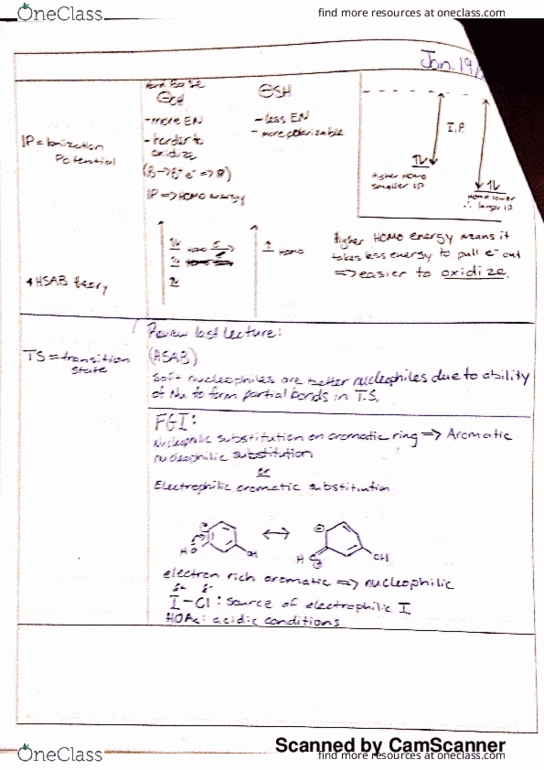 OneClass
find more resources at oneclass.com
Jan. 19/
Hard Base
⊖OH
⊖SH
- more EN
- less EN
IP = Ionization
Potential
- harder to
oxidize
- more polarizable
IP => HOMO energy
I.P.
Higher HOMO
smaller IP
HOMO lower
∴ larger IP
HOMO
HOMO
Higher HOMO energy means it
takes less energy to pull e⁻ out
=> easier to oxidize.
HSAB theory
Review last lecture:
TS = transition
state
(HSAB)
Soft nucleophiles are better nucleophiles due to ability
of Nu to form partial bonds in T.S.
FGI:
Nucleophilic substitution on aromatic ring => Aromatic
nucleophilic substitution
or
Electrophilic aromatic substitution
HO
OH
H
OH
electron rich aromatic => nucleophilic
δ+ δ-
I-Cl : source of electrophilic I
HOAc : acidic conditions
Scanned by CamScanner
OneClass
find more resources at oneclass.com